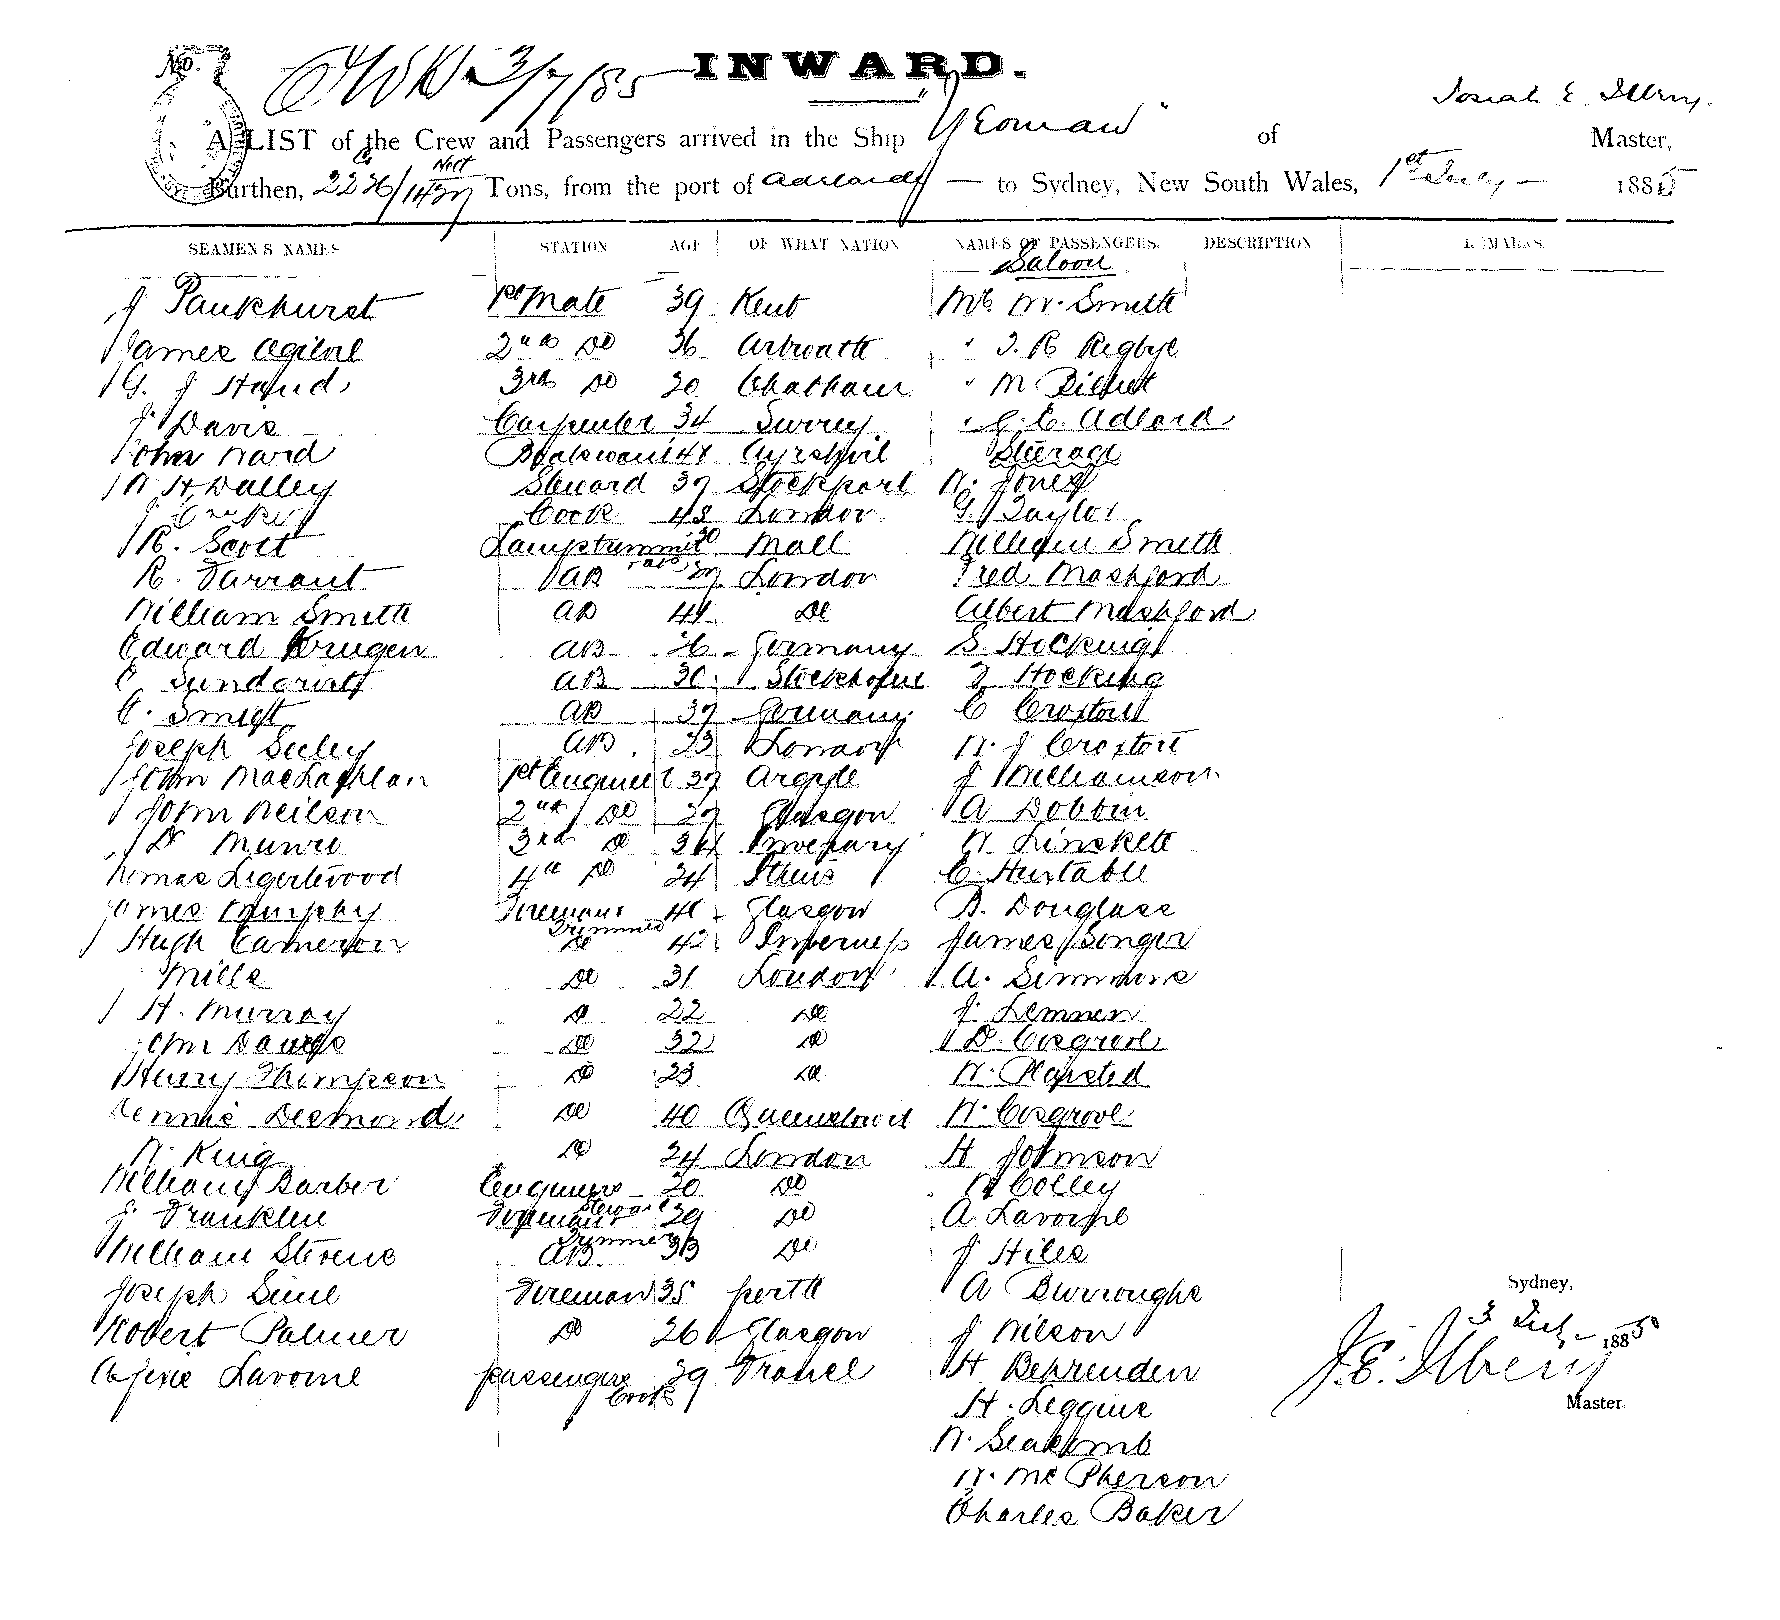 No. 3/7/85 INWARD.
Josiah E. Ilbery.
A LIST of the Crew and Passengers arrived in the Ship "Yeoman" of Master,
Burthen, 2236/1437 Nett Tons, from the port of Adelaide to Sydney, New South Wales, 1st July 1885
SEAMEN'S NAMES STATION AGE OF WHAT NATION NAMES OF PASSENGERS. DESCRIPTION REMARKS
Saloon
J Pankhurst 1st Mate 39 Kent Mr. M. Smith
James Ogilvie 2nd Do 36 Arbroath " J. R Rigbye
G. J Hand 3rd Do 20 Chatham " M
J. Davis Carpenter 34 Surrey " C. E. Adlard
John Ward Boatswain 48 Steerage
W H Dalley Steward 37 Stockport W. Jones
J Cook 43 London G. Taylor
R. Scott Lamptrimmer 30 William Smith
R. Tarrant AB 37 London Fred Mashford
William Smith AB 44 Do Albert Mashford
Edward Krugen AB 26 Germany S. Hocking
AB 30 Stockholm J Hocking
C. Smidt AB 37 Germany C Croxton
Joseph Seeley AB 23 London W. J Croxton
John MacLachlan 1st Engineer 37 Argyle J Williamson
John Neilson 2nd Do 27 Glasgow A Dobbin
D Munro 3rd Do 34 Inverary W Linskett
Thomas Ligertwood 4th Do 24 C. Huxtable
James Fireman Trimmer 40 Glasgow B. Douglass
Hugh Cameron Do 42 Inverness James Conger
Mills Do 31 London A. Simmons
H. Murray Do 22 Do J. Lemnen
John Do 32 Do D. Cosgrove
Henry Thompson Do 23 Do W. Plapsted
Dennis Desmond Do 40 Queenstown W. Cosgrove
W. King Do 24 London H Johnson
William Barber Engineers Steward 20 Do W Colley
J. Franklin Fireman Trimmer 29 Do A Lavoine
William Stevens AB 33 Do J Hiles
Joseph Fireman 35 Perth A Burroughs
Robert Palmer Do 26 Glasgow J Wilson
Lavoine passengers Cook 39 France H Behrenden
H. Leggins
W. Seacomb
W. Mc Pherson
Charles Baker
Sydney,
3 July 1885
J. E. Ilbery
Master.